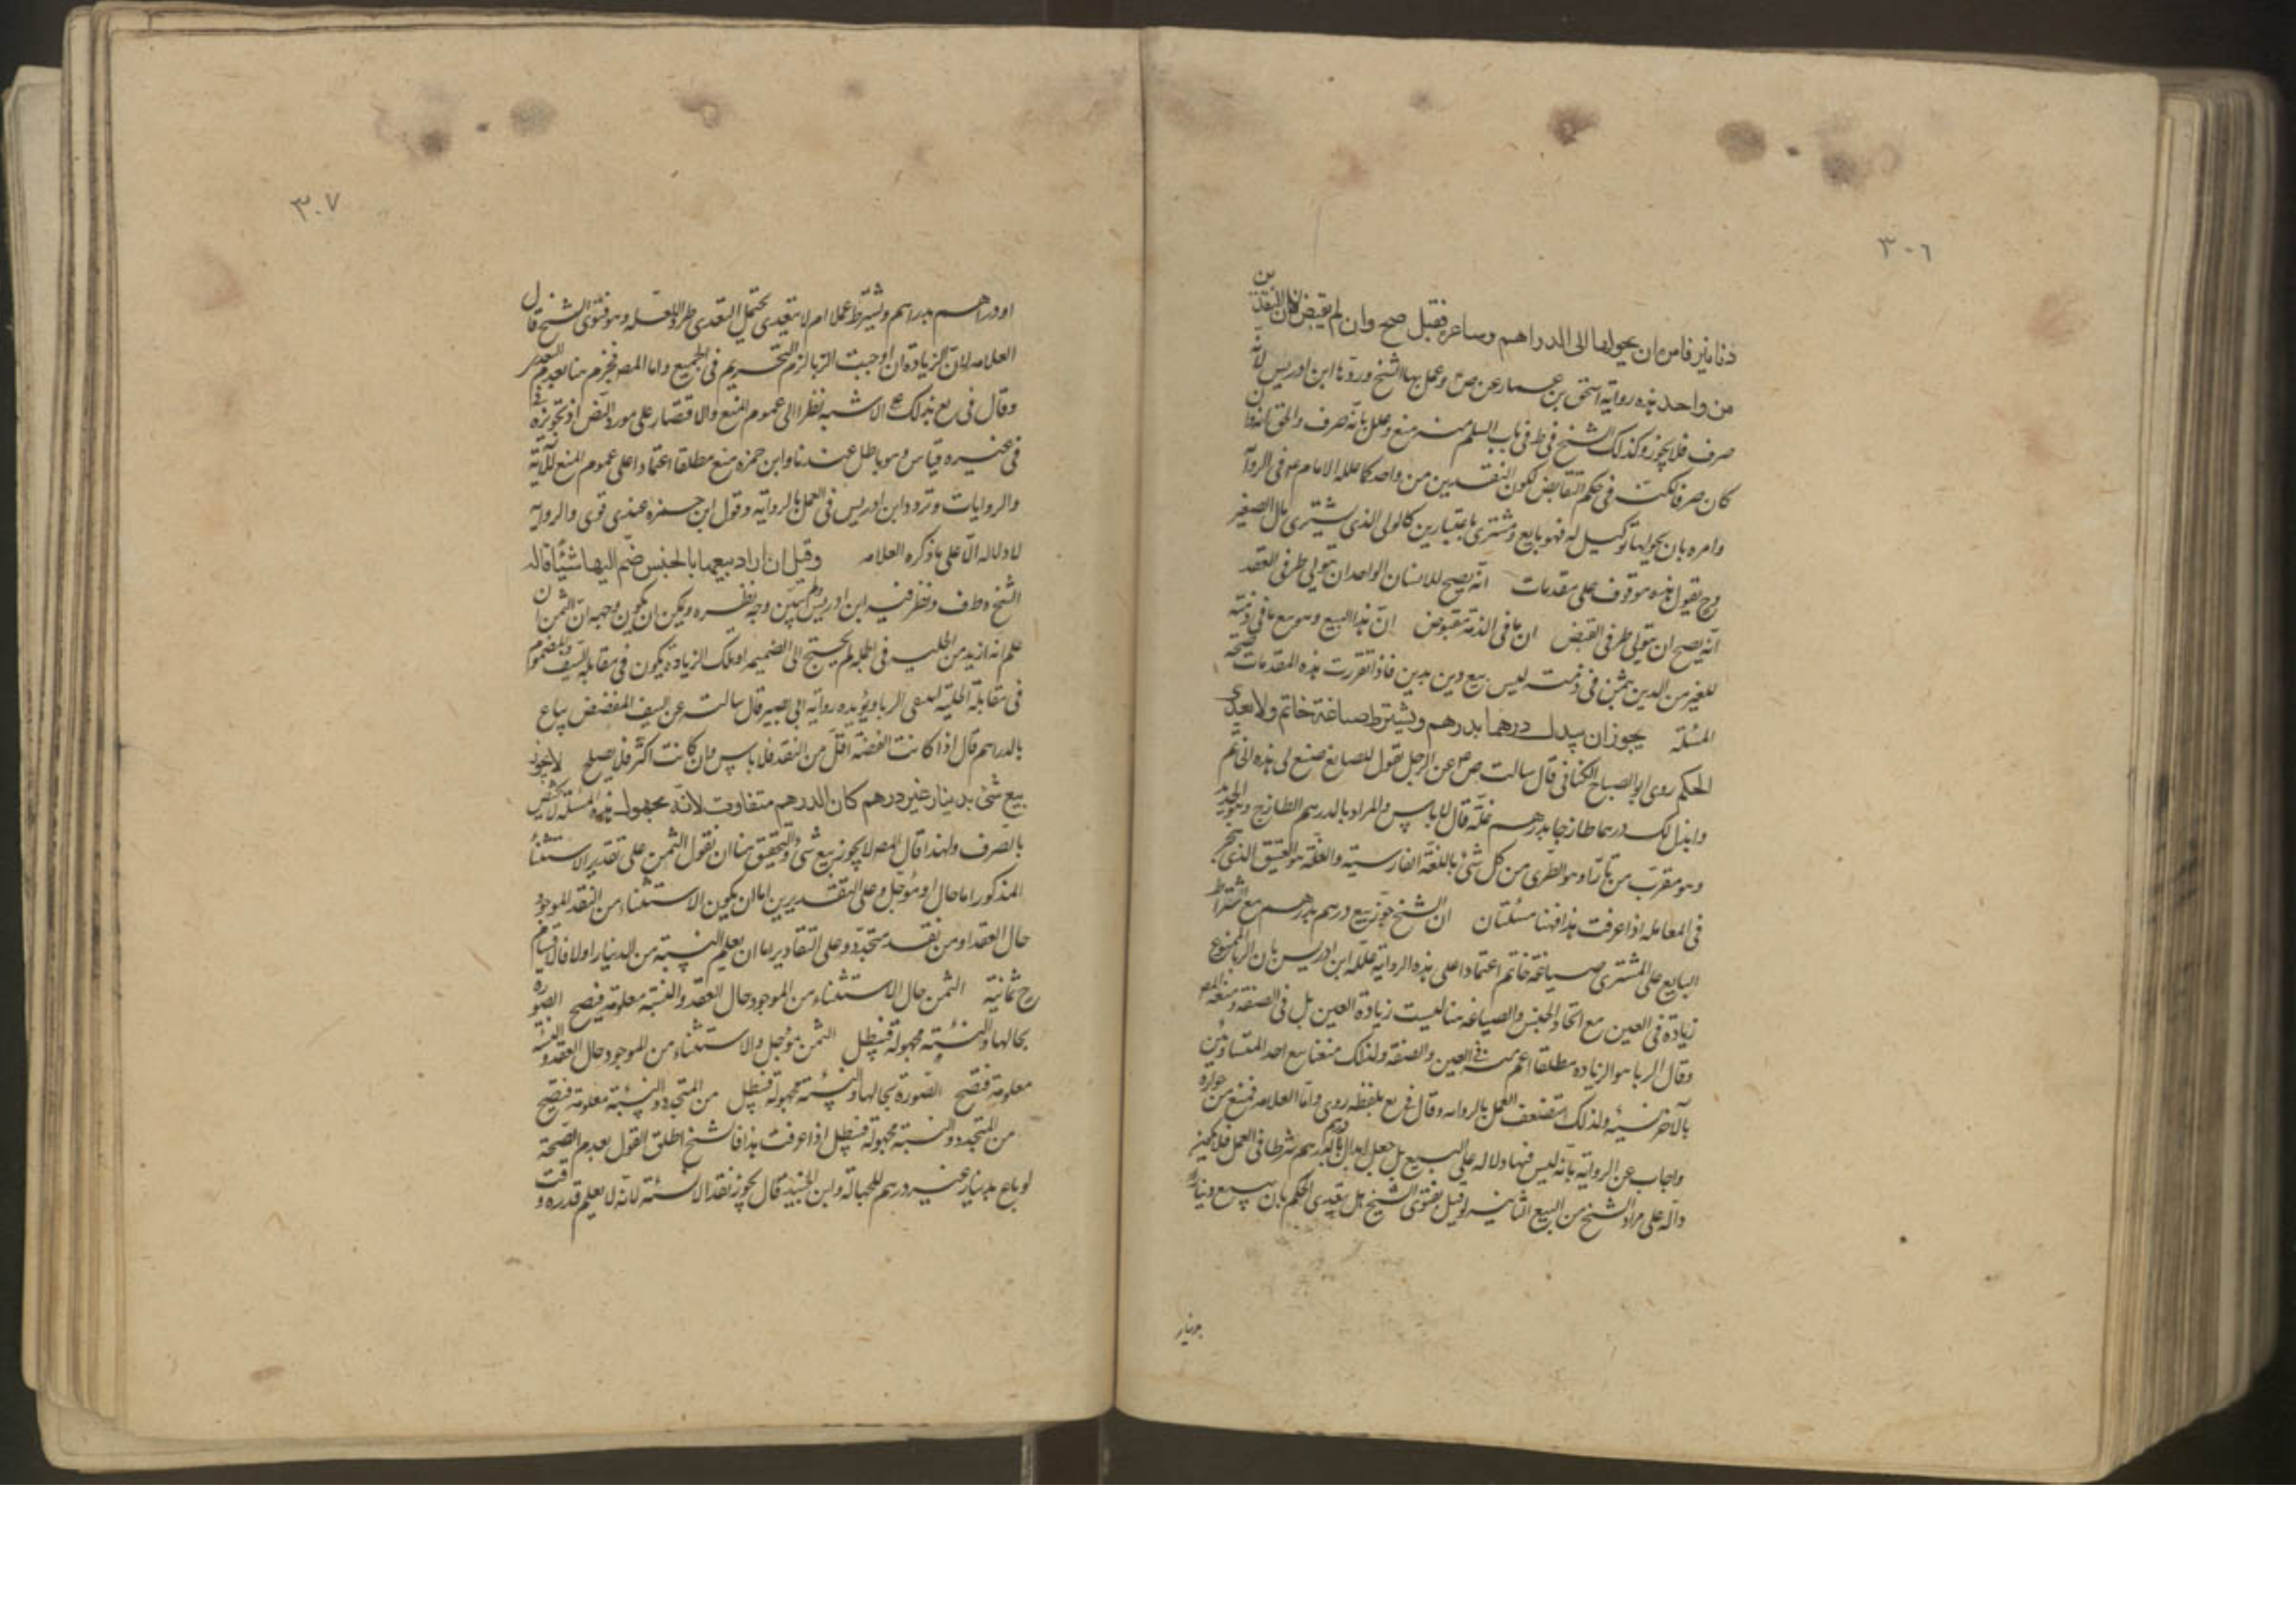 ٣٠٦
دنانير فامره ان يحولها الى الدراهم وساعره فقبل صح وان لم يقبض لان النقدين
من واحد هذه رواية اسحق بن عمار عن ص ع وعمل بها الشيخ وردها ابن ادريس لانه
صرف فلا يجوز وكذلك الشيخ في ط في باب السلم منع وعلل بانه صرف والحق انه وان
كان صرفا لكنه في حكم التقابض لكون النقدين من واحد كما علله الامام ع في الرواية
وامره بان يحولها توكيل له فهو بايع ومشترى باعتبارين كالولى الذى يشترى مال الصغير
وح نقول هذه موقوف على مقدمات انه يصح للانسان الواحد ان يتولى طرفى العقد
انه يصح ان يتولى طرفى القبض ان ما في الذمة مقبوض ان هذا البيع وهو بيع ما في ذمته
للغير من الدين بثمن في ذمته ليس بيع دين بدين فاذا تقررت هذه المقدمات صحت
المسئلة يجوز ان يبدل درهما بدرهم ويشترط صياغة خاتم ولا يعدى
الحكم روى ابو الصباح الكنانى قال سالت ص ع عن الرجل يقول للصايغ صنع لى هذه الخاتم
وابدل لك درهما طازجا بدرهم غلة قال لا باس والمراد بالدرهم الطازج الجديد
وهو معرب من تازه وهو الطرى من كل شئ باللغة الفارسية والغلة هو العتيق الذى
في المعامله اذا عرفت هذا فهنا مسئلتان ان الشيخ جوز بيع درهم بدرهم مع اشتراط
البايع على المشترى صياغة خاتم اعتمادا على هذه الرواية علله ابن ادريس بان الربا الممنوع
زيادة في العين مع اتحاد الجنس والصياغه هنا ليست زيادة العين بل في الصفة ومنعه المص
وقال الربا هو الزياده مطلقا اعم من في العين والصفة ولذلك منعنا بيع احد المتساويين
بالآخر نسيئه ولذلك استضعف العمل بالروايه وقال في يع بلفظه روى واما العلامه فمنع من جوازه
واجاب عن الرواية بانه ليس فيها دلاله على البيع بل جعل ابدال درهم بالدرهم شرطا في العمل فلا يكون
دالة على مراد الشيخ من البيع الثانيه لو قيل بفتوى الشيخ هل يتعدى الحكم بان يبيع دينارا
بدينار
٣٠٧
او دراهم بدراهم ويشترط عملا ام لا يتعدى يحتمل التعدى طرد اللعله وهو فتوى الشيخ قال
العلامه لان الزيادة ان اوجبت الربا لزم التحريم في الجميع واما المص فجزم هنا بعدم التعدى
وقال في يع بذلك على الاشبه نظرا الى عموم المنع والاقتصار على مورد النص اذ تجويزه
في غيره قياس وهو باطل عندنا وابن حمزه منع مطلقا اعتمادا على عموم المنع للآية
والروايات وتردد ابن ادريس في العمل بالرواية وقول ابن حمزه عندى قوى والرواية
لا دلاله الا على ما ذكره العلامه وقيل ان اراد بيعها بالجنس ضم اليها شيئا قاله
الشيخ وط ف ونظر فيه ابن ادريس ولم يبين وجه نظره ويمكن ان يكون وجهه ان الثمن ان
علم انه ازيد من الحليه في الجمله لم يحتج الى الضميمه اذ تلك الزيادة يكون في مقابلة السيف والمضموم
في مقابلة الحلية لينتفى الربا ويؤيده رواية ابى بصير قال سالته عن السيف المفضض يباع
بالدراهم قال اذا كانت الفضة اقل من النقد فلا باس وان كانت اكثر فلا يصلح لا يجوز
بيع شئ بدينار غير درهم كان الدرهم متفاوت لانه مجهول هذه المسئلة لا يختص
بالصرف ولهذا قال المص لا يجوز بيع شئ والتحقيق هنا ان نقول الثمن على تقدير الاستثناء
المذكور اما حال او مؤجل وعلى التقديرين اما ان يكون الاستثناء من النقد الموجود
حال العقد او من نقد متجدد وعلى التقادير اما ان يعلم النسبة من الدينار او لا فالاقسام
ح ثمانية الثمن حال الاستثناء من الموجود حال العقد والنسبة معلومة فيصح الصورة
بحالها والنسبة مجهولة فيبطل الثمن مؤجل والاستثناء من الموجود حال العقد والنسبة
معلومة فتصح الصورة بحالها والنسبة مجهولة فتبطل من المتجدد والنسبة معلومة فتصح
من المتجدد والنسبة مجهولة فتبطل اذا عرفت هذا فالشيخ اطلق القول بعدم الصحة
لو باع بدينار غير درهم للجهالة وابن الجنيد قال يجوز نقدا لا نسئة لانه لا يعلم قدره وقت